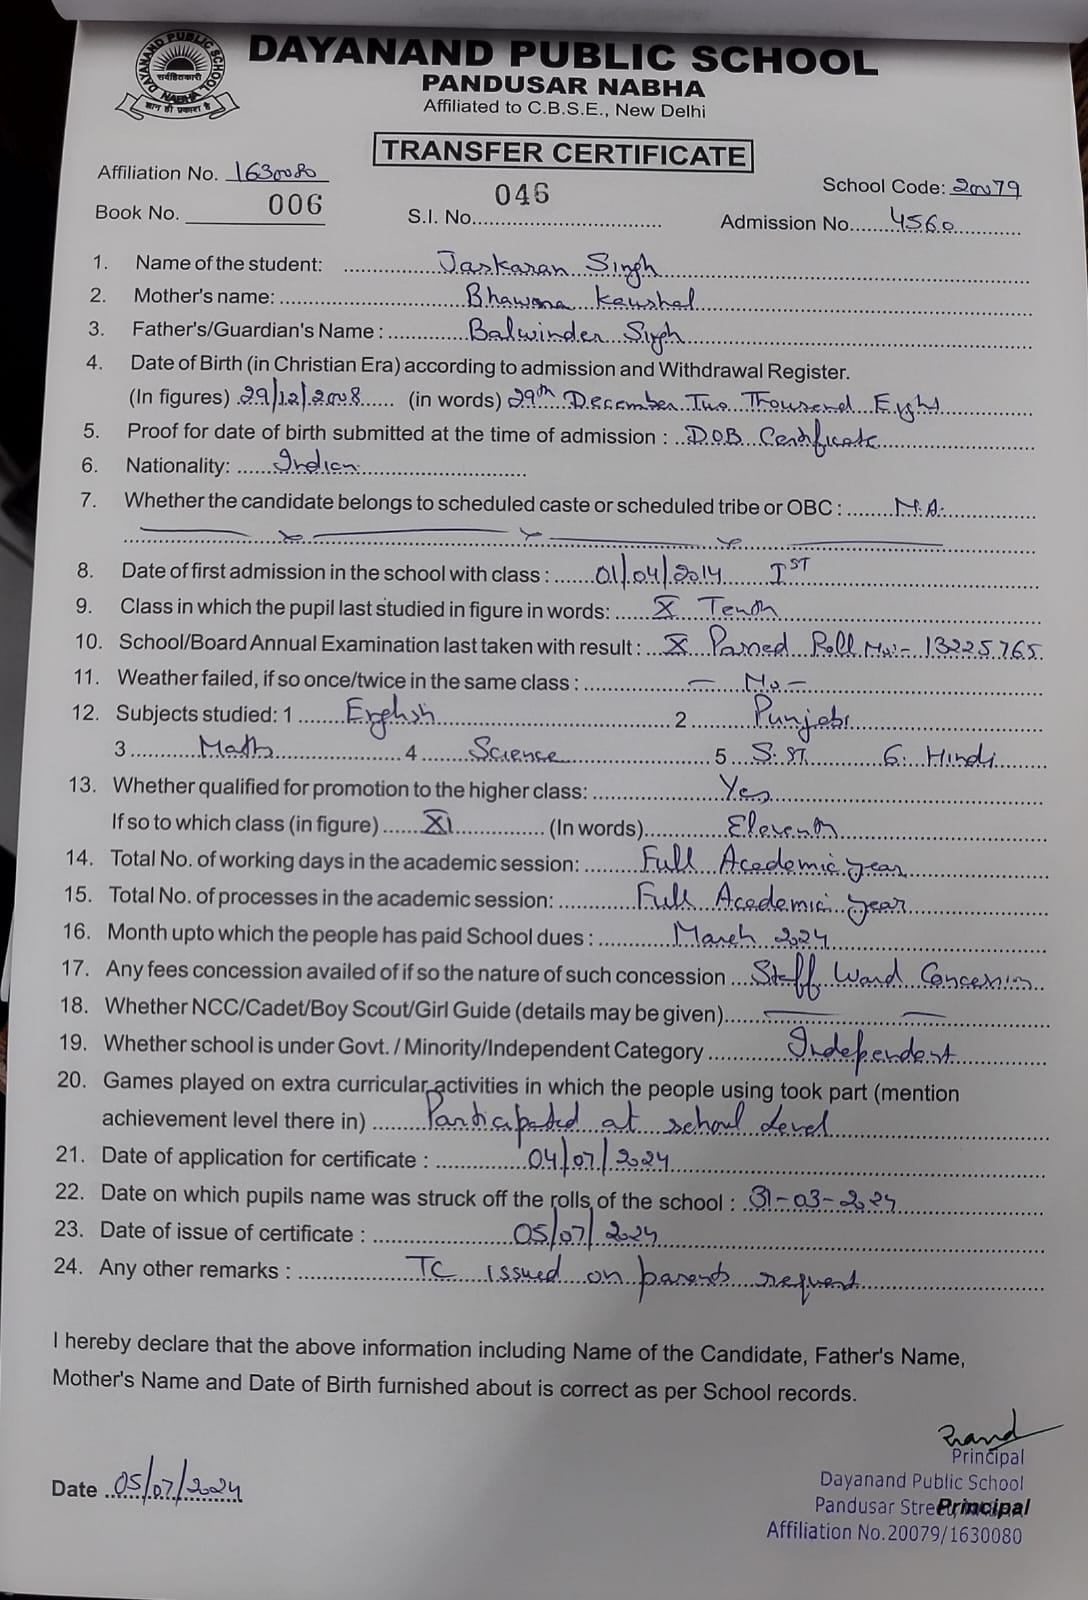 DAYANAND PUBLIC SCHOOL NABHA
सर्वहितकारी
ज्ञान ही प्रकाश है
DAYANAND PUBLIC SCHOOL
PANDUSAR NABHA
Affiliated to C.B.S.E., New Delhi
TRANSFER CERTIFICATE
Affiliation No. 1630080
School Code: 20079
Book No. 006 S.I. No. 046 Admission No. 4560
1. Name of the student: Jaskaran Singh
2. Mother's name: Bhawana Kaushal
3. Father's/Guardian's Name : Balwinder Singh
4. Date of Birth (in Christian Era) according to admission and Withdrawal Register.
(In figures) 29/12/2008 (in words) 29th December Two Thousand Eight
5. Proof for date of birth submitted at the time of admission : DOB Certificate
6. Nationality: Indian
7. Whether the candidate belongs to scheduled caste or scheduled tribe or OBC : N.A.
8. Date of first admission in the school with class : 01/04/2014 IST
9. Class in which the pupil last studied in figure in words: X Tenth
10. School/Board Annual Examination last taken with result : X Passed Roll No:- 13225765
11. Weather failed, if so once/twice in the same class : - No -
12. Subjects studied: 1 English 2 Punjabi
3 Math 4 Science 5 S.ST. 6. Hindi
13. Whether qualified for promotion to the higher class: Yes
If so to which class (in figure) XI (In words) Eleventh
14. Total No. of working days in the academic session: Full Academic year
15. Total No. of processes in the academic session: Full Academic year
16. Month upto which the people has paid School dues : March 2024
17. Any fees concession availed of if so the nature of such concession Staff Ward Concession
18. Whether NCC/Cadet/Boy Scout/Girl Guide (details may be given)
19. Whether school is under Govt. / Minority/Independent Category Independent
20. Games played on extra curricular activities in which the people using took part (mention
achievement level there in) Participated at school level
21. Date of application for certificate : 04/07/2024
22. Date on which pupils name was struck off the rolls of the school : 31-03-2024
23. Date of issue of certificate : 05/07/2024
24. Any other remarks : TC issued on parents request
I hereby declare that the above information including Name of the Candidate, Father's Name,
Mother's Name and Date of Birth furnished about is correct as per School records.
Date 05/07/2024
Principal
Dayanand Public School
Pandusar Street,
Principal
Affiliation No.20079/1630080